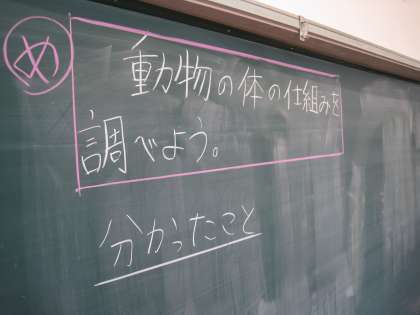 め
動物の体の仕組みを
調べよう。
分かったこと